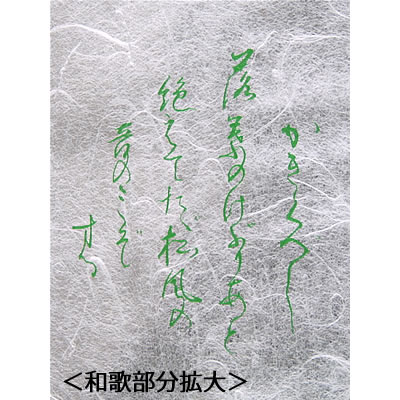 かきくべし
落葉のけぶりあと
絶えてただ松風の
音のみぞ
する
＜和歌部分拡大＞